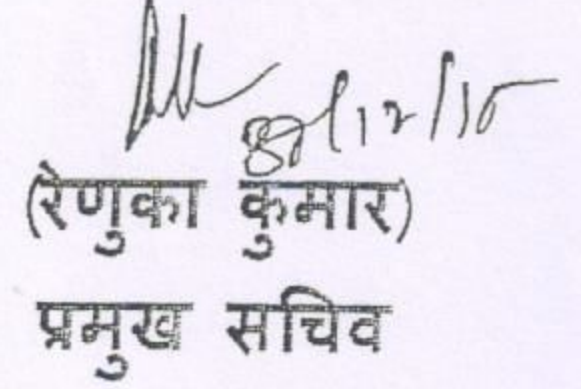 /12/15
(रेणुका कुमार)
प्रमुख सचिव